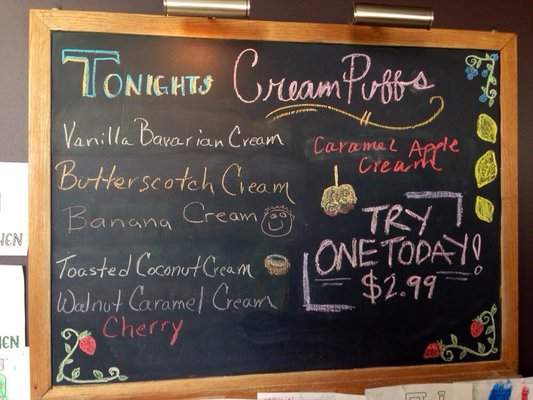 Tonights Cream Puffs
Vanilla Bavarian Cream
Butterscotch Cream
Banana Cream
Toasted Coconut Cream
Walnut Caramel Cream
Cherry
Caramel Apple
Cream
TRY
ONE TODAY!
$2.99
HEN
EN